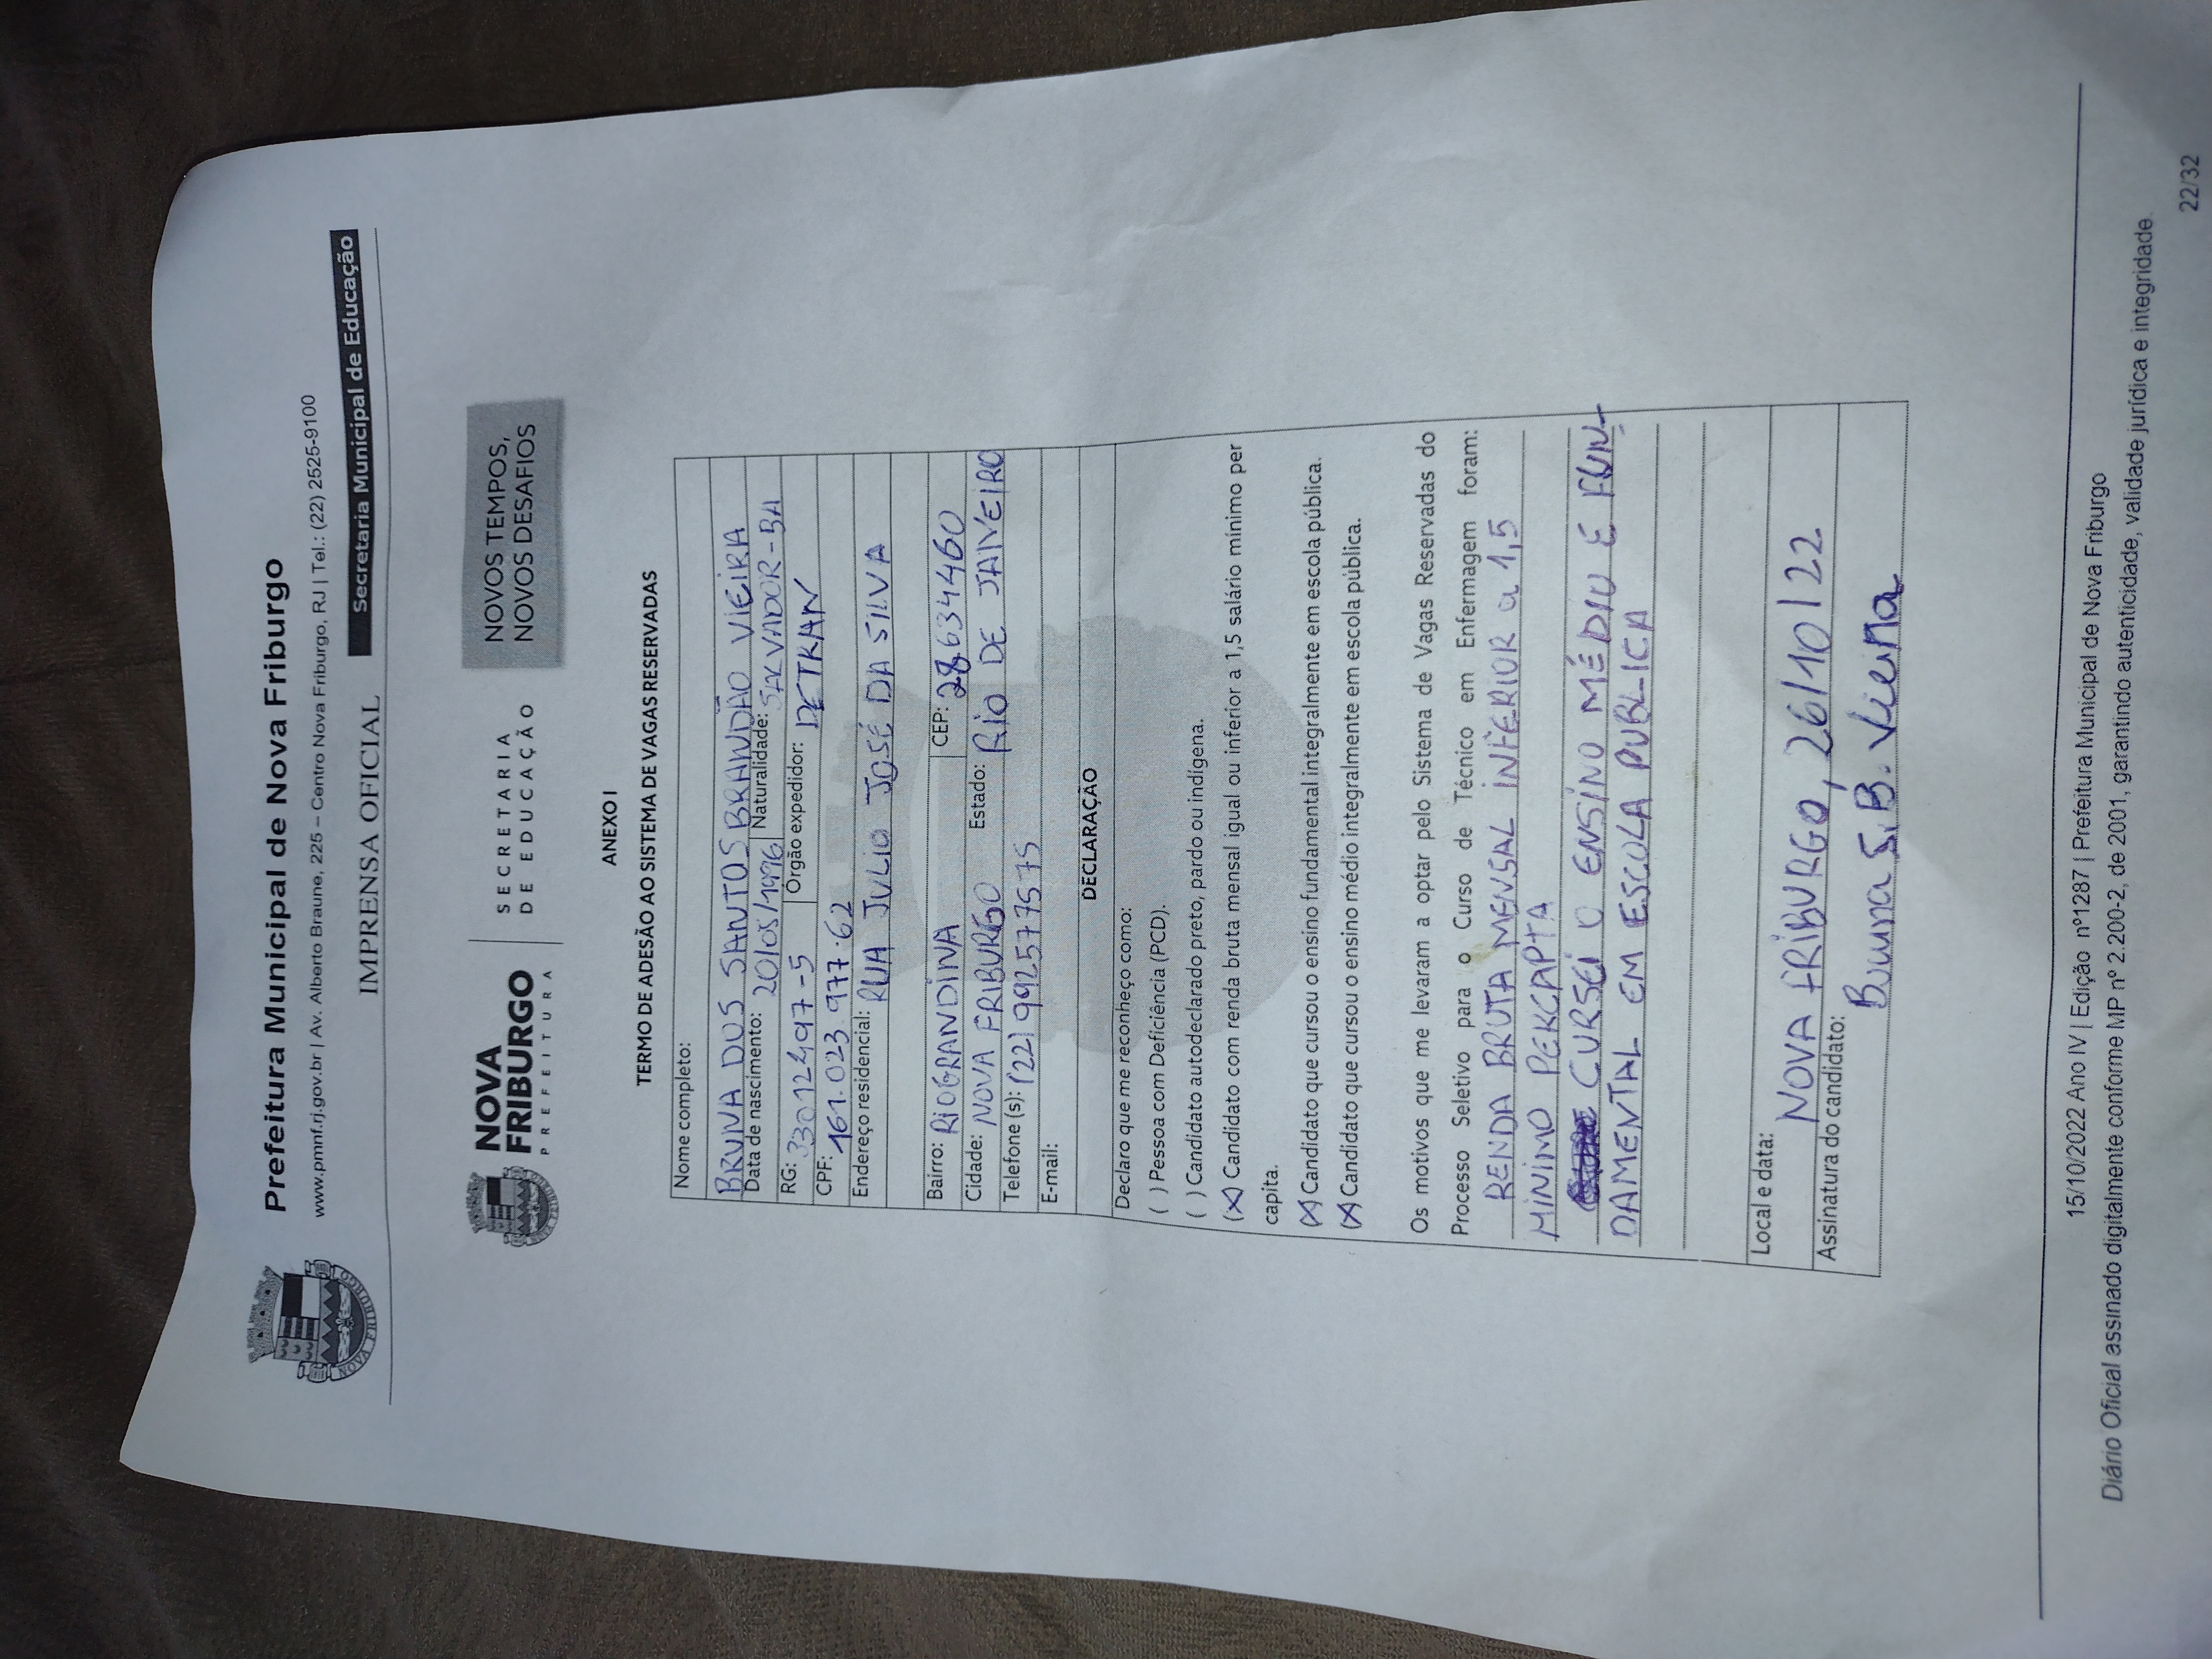 Prefeitura Municipal de Nova Friburgo
www.pmnf.rj.gov.br | Av. Alberto Braune, 225 – Centro Nova Friburgo, RJ | Tel.: (22) 2525-9100
IMPRENSA OFICIAL
Secretaria Municipal de Educação
NOVA FRIBURGO
NOVA
FRIBURGO
PREFEITURA
SECRETARIA
DE EDUCAÇÃO
NOVOS TEMPOS,
NOVOS DESAFIOS
ANEXO I
TERMO DE ADESÃO AO SISTEMA DE VAGAS RESERVADAS
Nome completo:
BRUNA DOS SANTOS BRANDÃO VIEIRA
Data de nascimento: 20/05/1996 Naturalidade: SALVADOR-BA
RG: 33012497-5 Órgão expedidor: DETRAN
CPF: 161.023.977.62
Endereço residencial: RUA JULIO JOSÉ DA SILVA
Bairro: RIOGRANDINA CEP: 28634460
Cidade: NOVA FRIBURGO Estado: RIO DE JANEIRO
Telefone (s): (22) 992577575
E-mail:
DECLARAÇÃO
Declaro que me reconheço como:
( ) Pessoa com Deficiência (PCD).
( ) Candidato autodeclarado preto, pardo ou indígena.
(X) Candidato com renda bruta mensal igual ou inferior a 1,5 salário mínimo per
capita.
(X) Candidato que cursou o ensino fundamental integralmente em escola pública.
(X) Candidato que cursou o ensino médio integralmente em escola pública.
Os motivos que me levaram a optar pelo Sistema de Vagas Reservadas do
Processo Seletivo para o Curso de Técnico em Enfermagem foram:
RENDA BRUTA MENSAL INFERIOR a 1,5
MINIMO PERCAPTA
CURSEI O ENSINO MÉDIO E FUN-
DAMENTAL EM ESCOLA PUBLICA
Local e data:
NOVA FRIBURGO, 26/10/22
Assinatura do candidato:
Bruna S. B. Vieira
15/10/2022 Ano IV | Edição nº1287 | Prefeitura Municipal de Nova Friburgo
Diário Oficial assinado digitalmente conforme MP nº 2.200-2, de 2001, garantindo autenticidade, validade jurídica e integridade
22/32